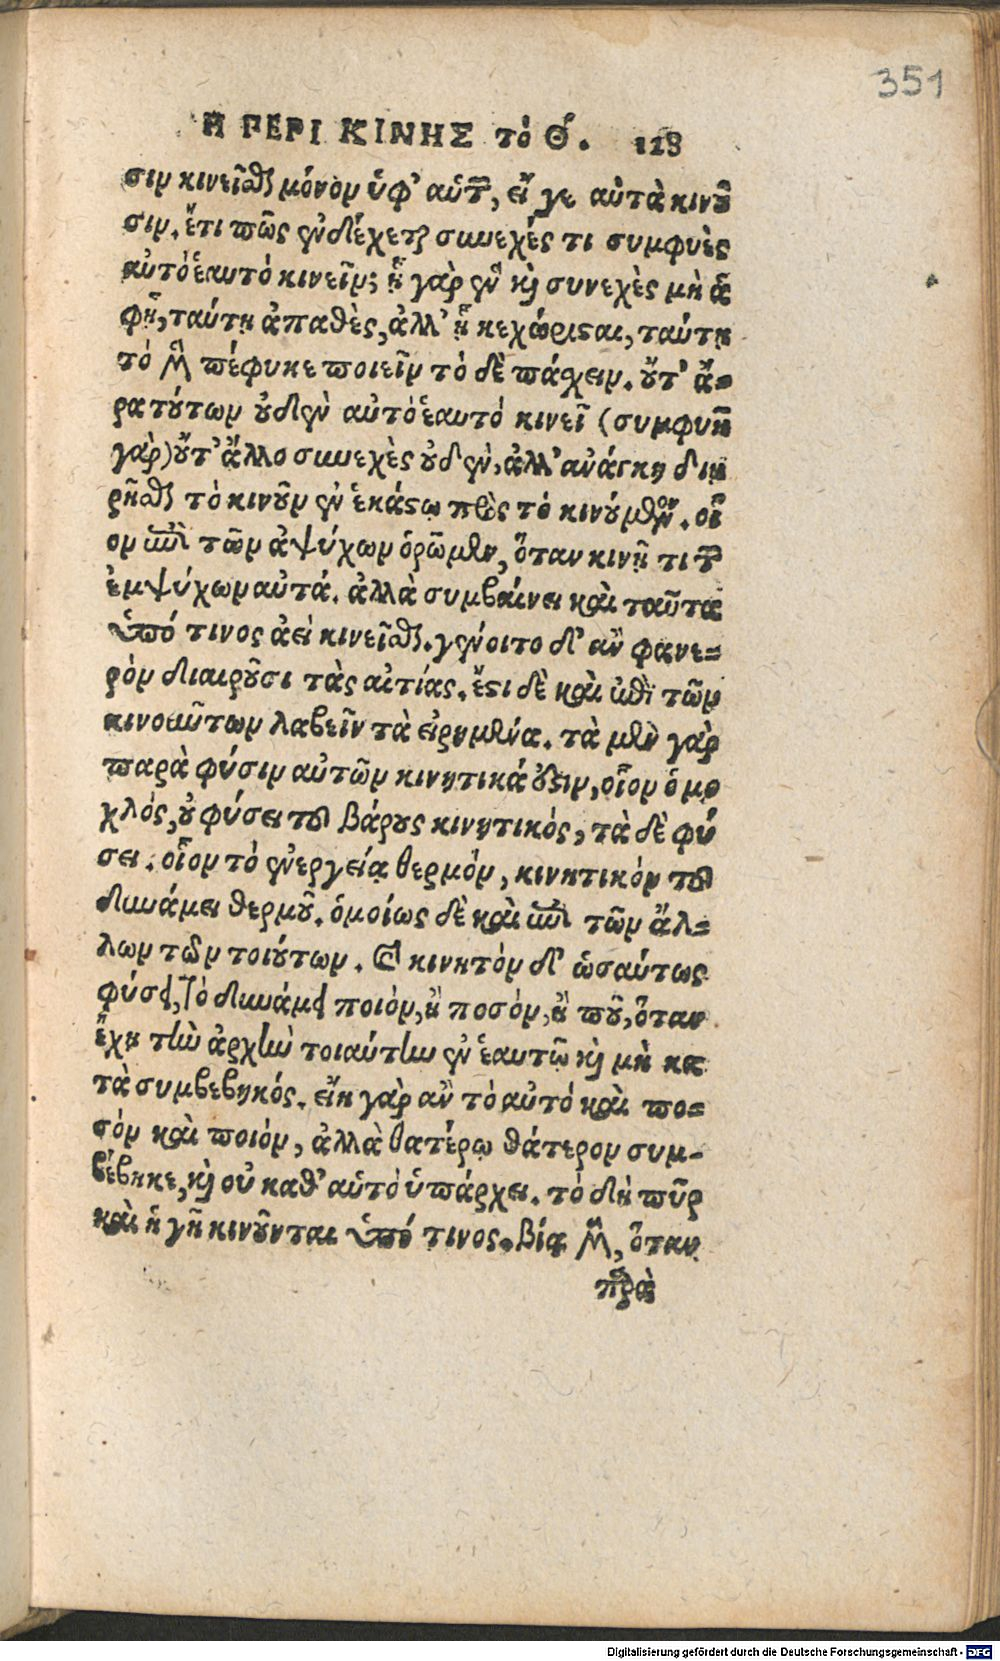 351
Η ΠΕΡΙ ΚΙΝΗΣ τὸ Θ´. 118
σιν κινεῖσθαι μόνον ὑφ' αὑτῶν, εἴ γε αὐτὰ κινοῦ
σιν. ἔτι πῶς ἐνδέχεται συνεχές τι συμφυὲς
αὐτὸ ἑαυτὸ κινεῖν; ᾗ γὰρ ἓν καὶ συνεχὲς μὴ ἁ
φῇ, ταύτῃ ἀπαθὲς, ἀλλ' ᾗ κεχώρισαι, ταύτῃ
τὸ μὲν πέφυκε ποιεῖν τὸ δὲ πάσχειν. οὔτ' ἄ-
ρα τούτων οὐδὲν αὐτὸ ἑαυτὸ κινεῖ (συμφυῆ
γὰρ) οὔτ' ἄλλο συνεχὲς οὐδέν, ἀλλ' ἀνάγκη διῃ
ρῆσθαι τὸ κινοῦν ἐν ἑκάστῳ πρὸς τὸ κινούμενον. οἷ
ον ἐπὶ τῶν ἀψύχων ὁρῶμεν, ὅταν κινῇ τι τῶν
ἐμψύχων αὐτά. ἀλλὰ συμβαίνει καὶ ταῦτα
ὑπό τινος ἀεὶ κινεῖσθαι. γένοιτο δ' ἂν φανε-
ρὸν διαιροῦσι τὰς αἰτίας. ἔστι δὲ καὶ ἐπὶ τῶν
κινούντων λαβεῖν τὰ εἰρημένα. τὰ μὲν γὰρ
παρὰ φύσιν αὐτῶν κινητικά ἐστιν, οἷον ὁ μο
χλός, οὐ φύσει τοῦ βάρους κινητικός, τὰ δὲ φύ
σει. οἷον τὸ ἐνεργείᾳ θερμόν, κινητικὸν τοῦ
δυνάμει θερμοῦ. ὁμοίως δὲ καὶ ἐπὶ τῶν ἄλ-
λων τῶν τοιούτων. καὶ κινητὸν δ' ὡσαύτως
φύσει, τὸ δυνάμει ποιόν, ἢ ποσόν, ἢ ποῦ, ὅταν
ἔχῃ τὴν ἀρχὴν τοιαύτην ἐν ἑαυτῷ καὶ μὴ κα
τὰ συμβεβηκός. εἴη γὰρ ἂν τὸ αὐτὸ καὶ πο-
σὸν καὶ ποιόν, ἀλλὰ θατέρῳ θάτερον συμ-
βέβηκε, καὶ οὐ καθ' αὑτὸ ὑπάρχει. τὸ δὴ πῦρ
καὶ ἡ γῆ κινοῦνται ὑπό τινος. βίᾳ μὲν, ὅταν
παρὰ
Digitalisierung gefördert durch die Deutsche Forschungsgemeinschaft - DFG